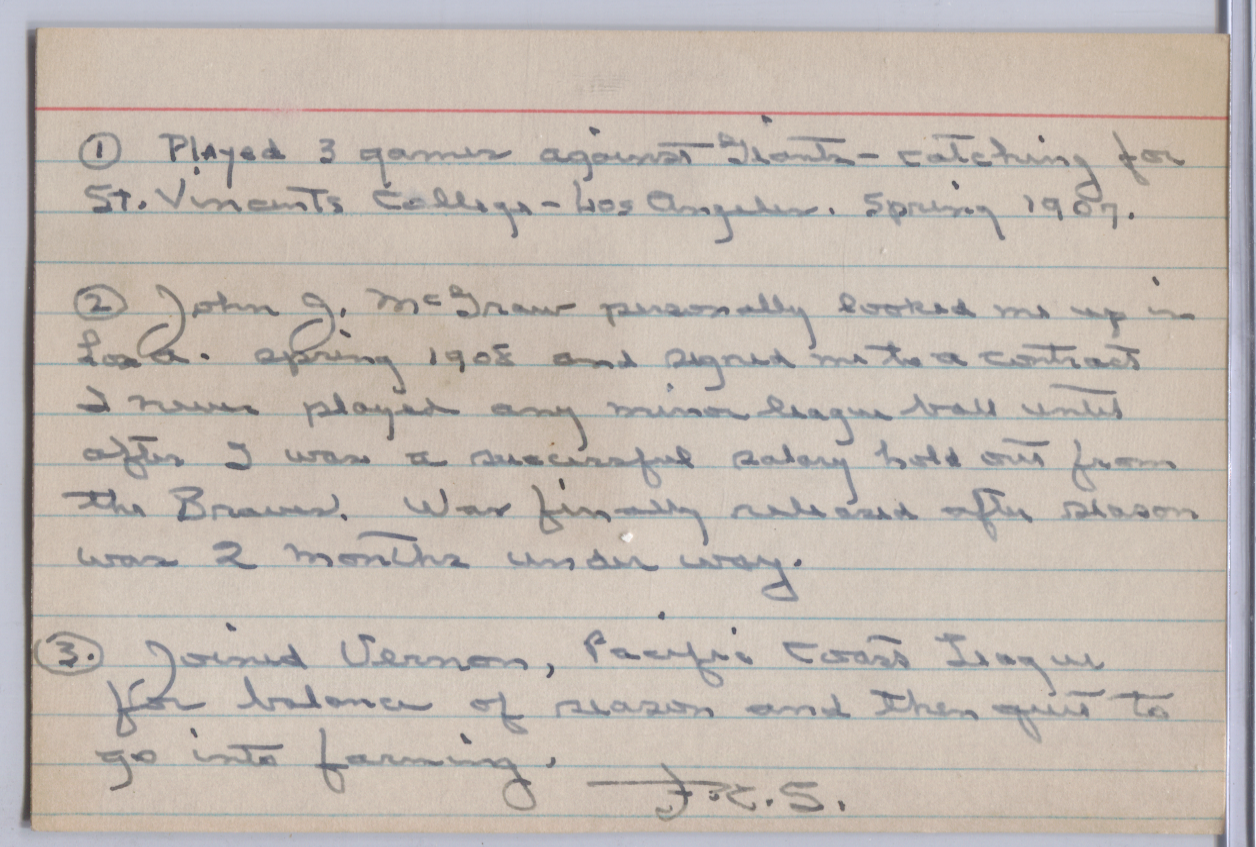 ① Played 3 games against Giants - catching for
St. Vincents College - Los Angeles. Spring 1907.
② John J. McGraw personally looked me up in
Los A. Spring 1908 and signed me to a contract
I never played any minor league ball until
after I was a successful salary hold out from
the Braves. Was finally released after season
was 2 months under way.
③. Joined Vernon, Pacific Coast League
for balance of season and then quit to
go into farming.
— F.C.S.